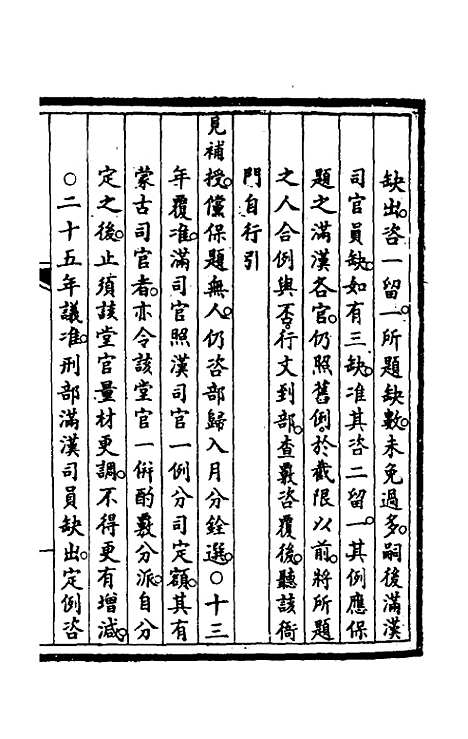 缺出。咨一留一。所題缺數。未免過多。嗣後滿漢
司官員缺。如有三缺。准其咨二留一。其例應保
題之滿漢各官。仍照舊例。於截限以前。將所題
之人合例與否。行文到部。查覈咨覆後。聽該衙
門自行引
見補授。儻保題無人。仍咨部歸入月分銓選。○十三
年覆准。滿司官照漢司官一例分司定額。其有
蒙古司官者。亦令該堂官一併酌覈分派。自分
定之後。止須該堂官量材更調。不得更有增減。
○二十五年議准。刑部滿漢司員缺出。定例咨